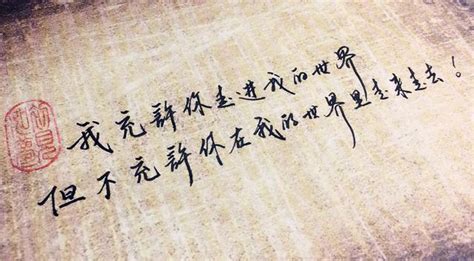 我充許你走進我的世界
但不充許你在我的世界里走来走去！